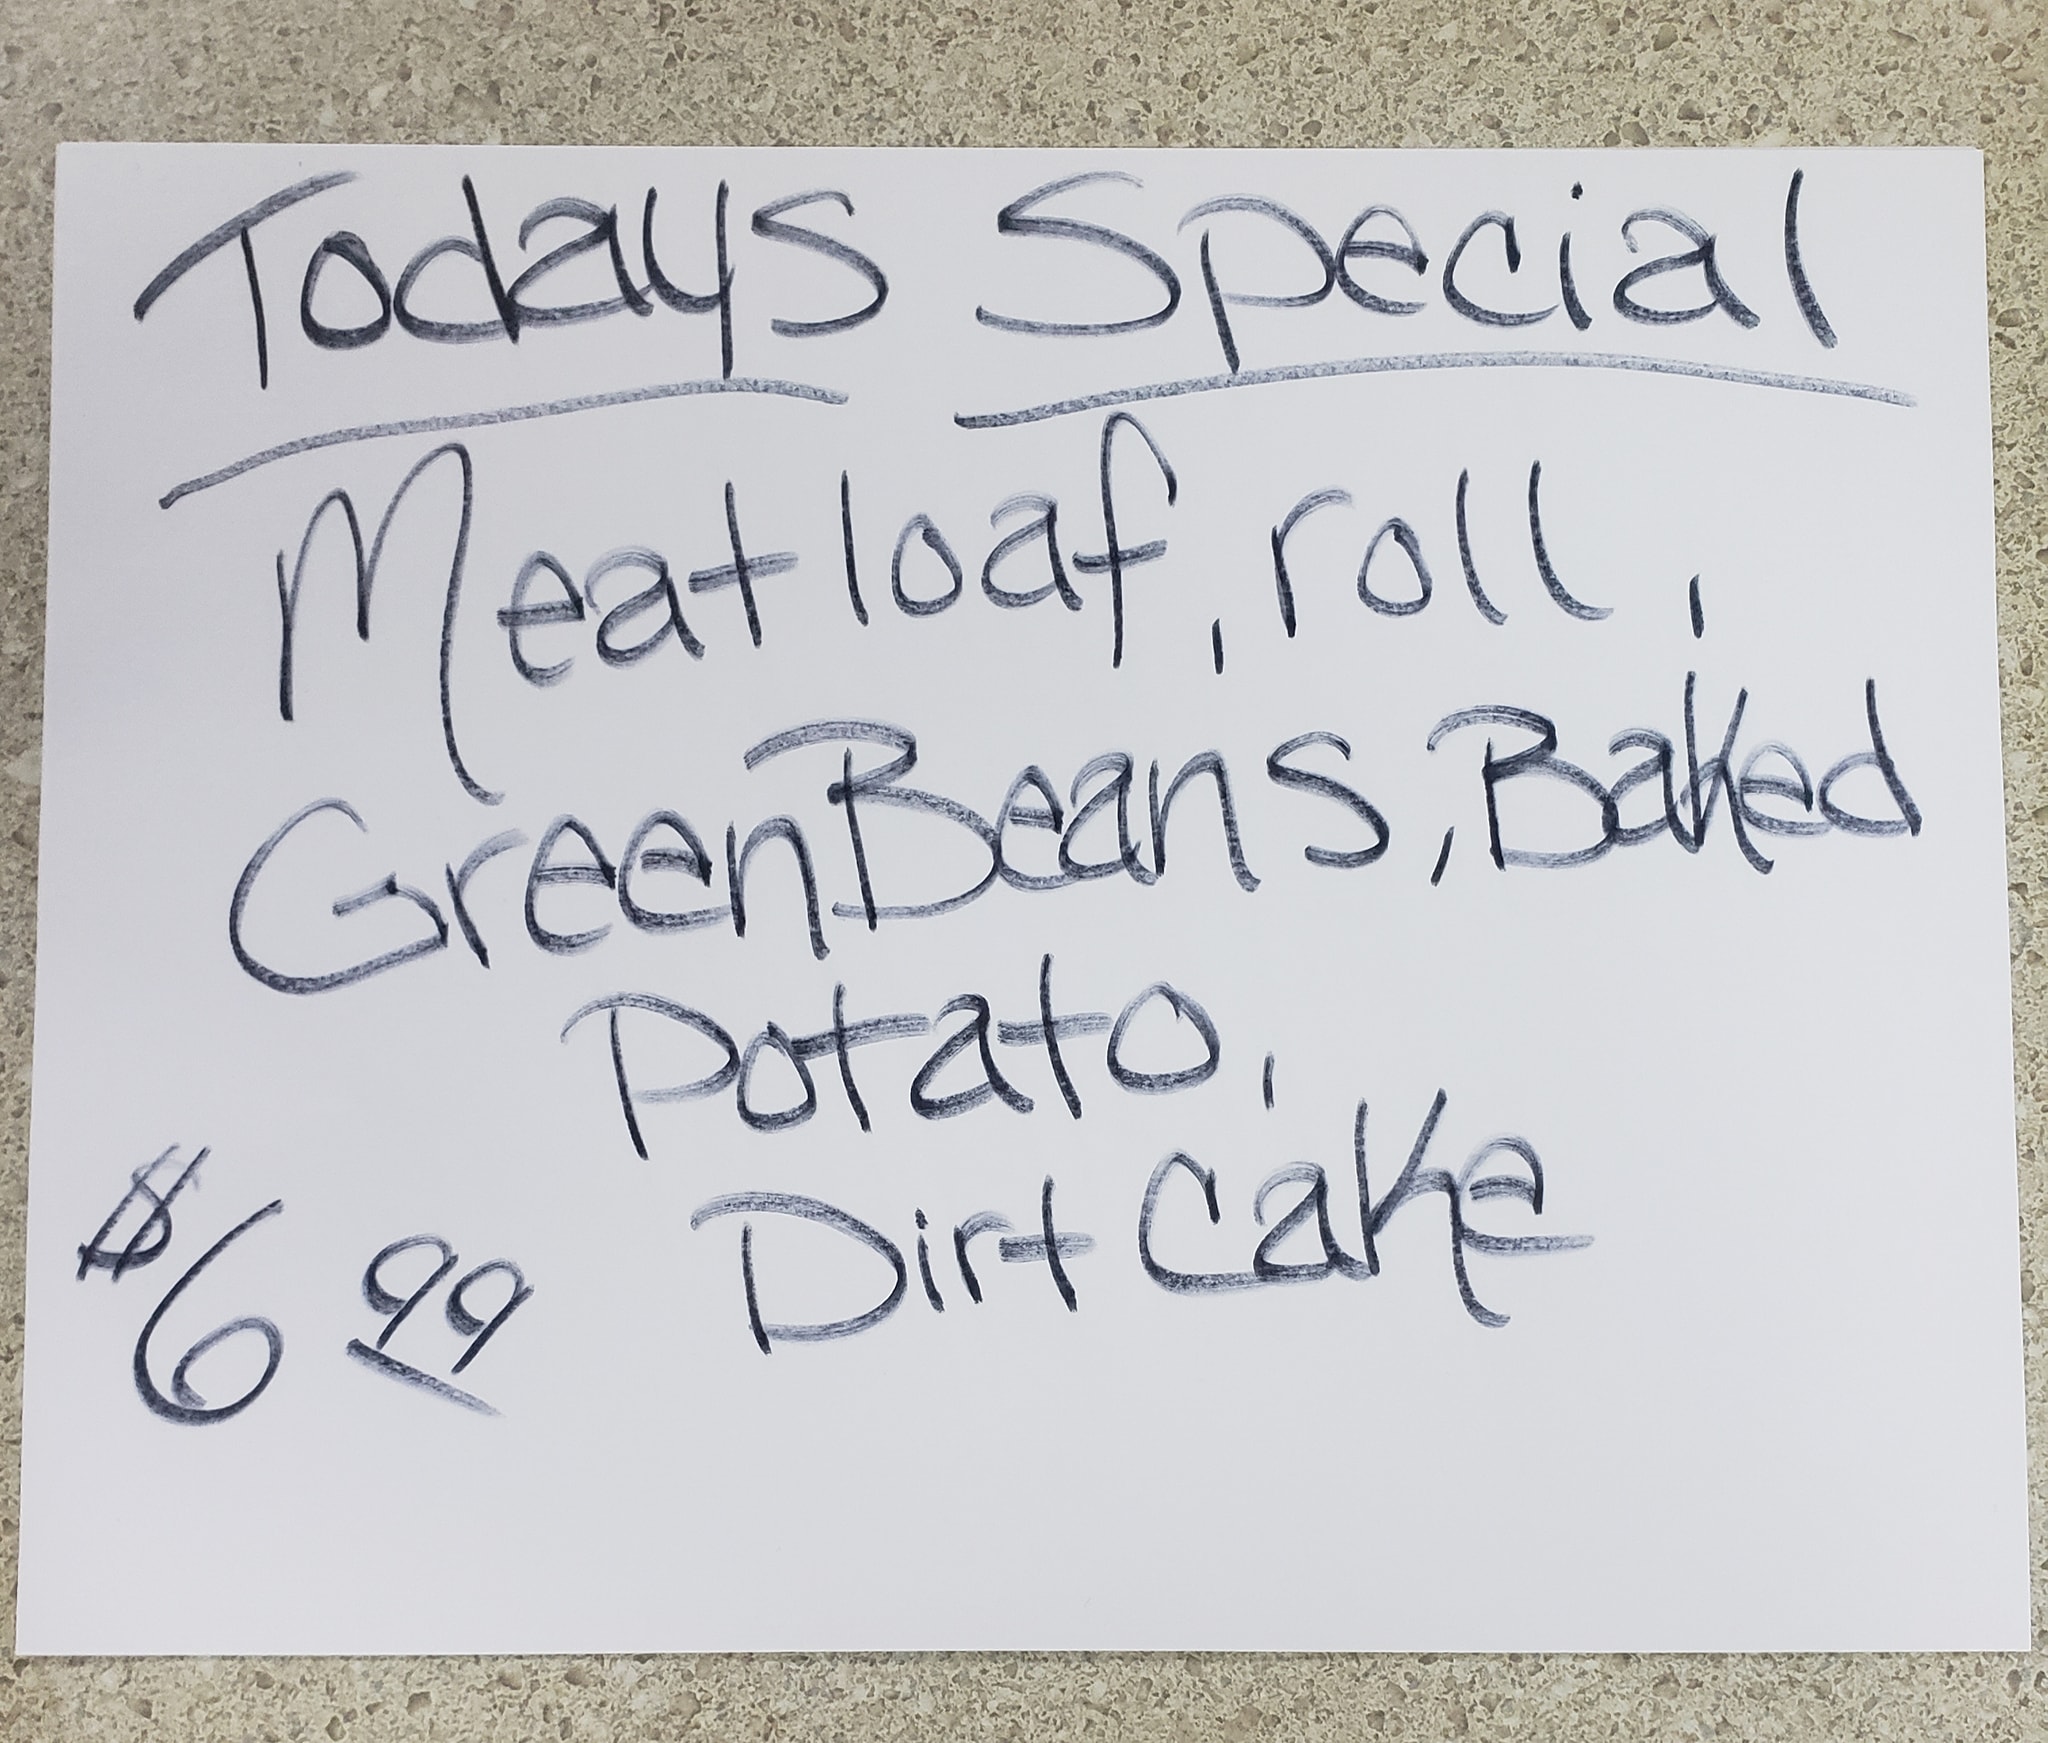 Todays Special
Meatloaf, roll,
Green Beans, Baked
Potato,
Dirt Cake
$6 99